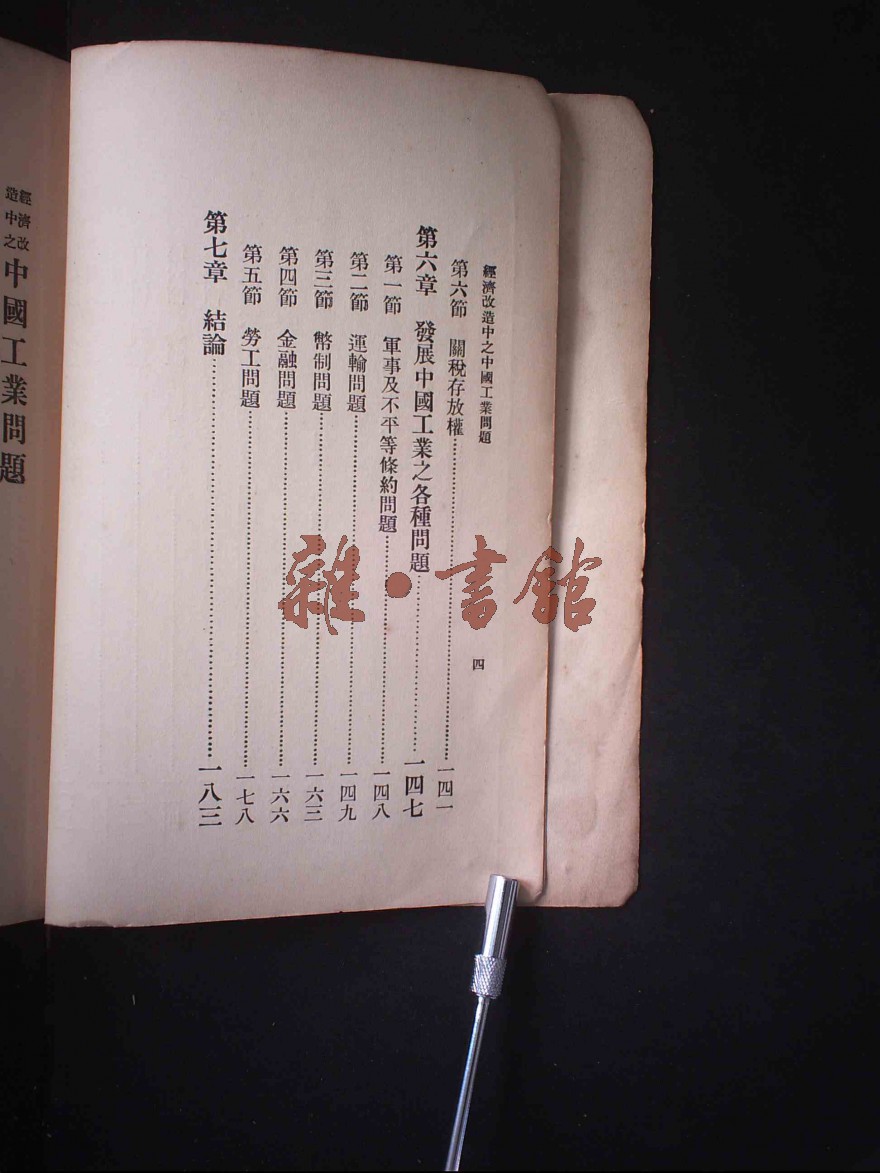 經濟改造中之中國工業問題
四
第六節 關稅存放權……一四一
第六章 發展中國工業之各種問題……一四七
第一節 軍事及不平等條約問題……一四八
第二節 運輸問題……一四九
第三節 幣制問題……一六三
第四節 金融問題……一六六
第五節 勞工問題……一七八
第七章 結論……一八三
經濟改造中之中國工業問題
雜·書館